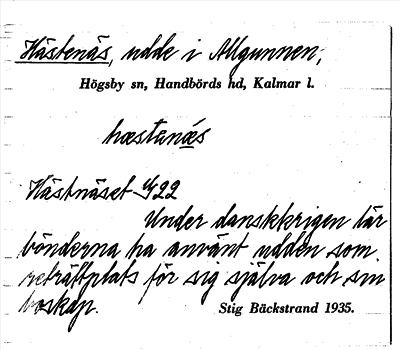 Hästenäs, udde i Allgunnen,
Högsby sn, Handbörds hd, Kalmar l.
hæstenæ̀s
Hästnäset
Under danskkrigen lär
bönderna ha använt udden som
reträttplats för sig själva och sin
boskap.
Stig Bäckstrand 1935.